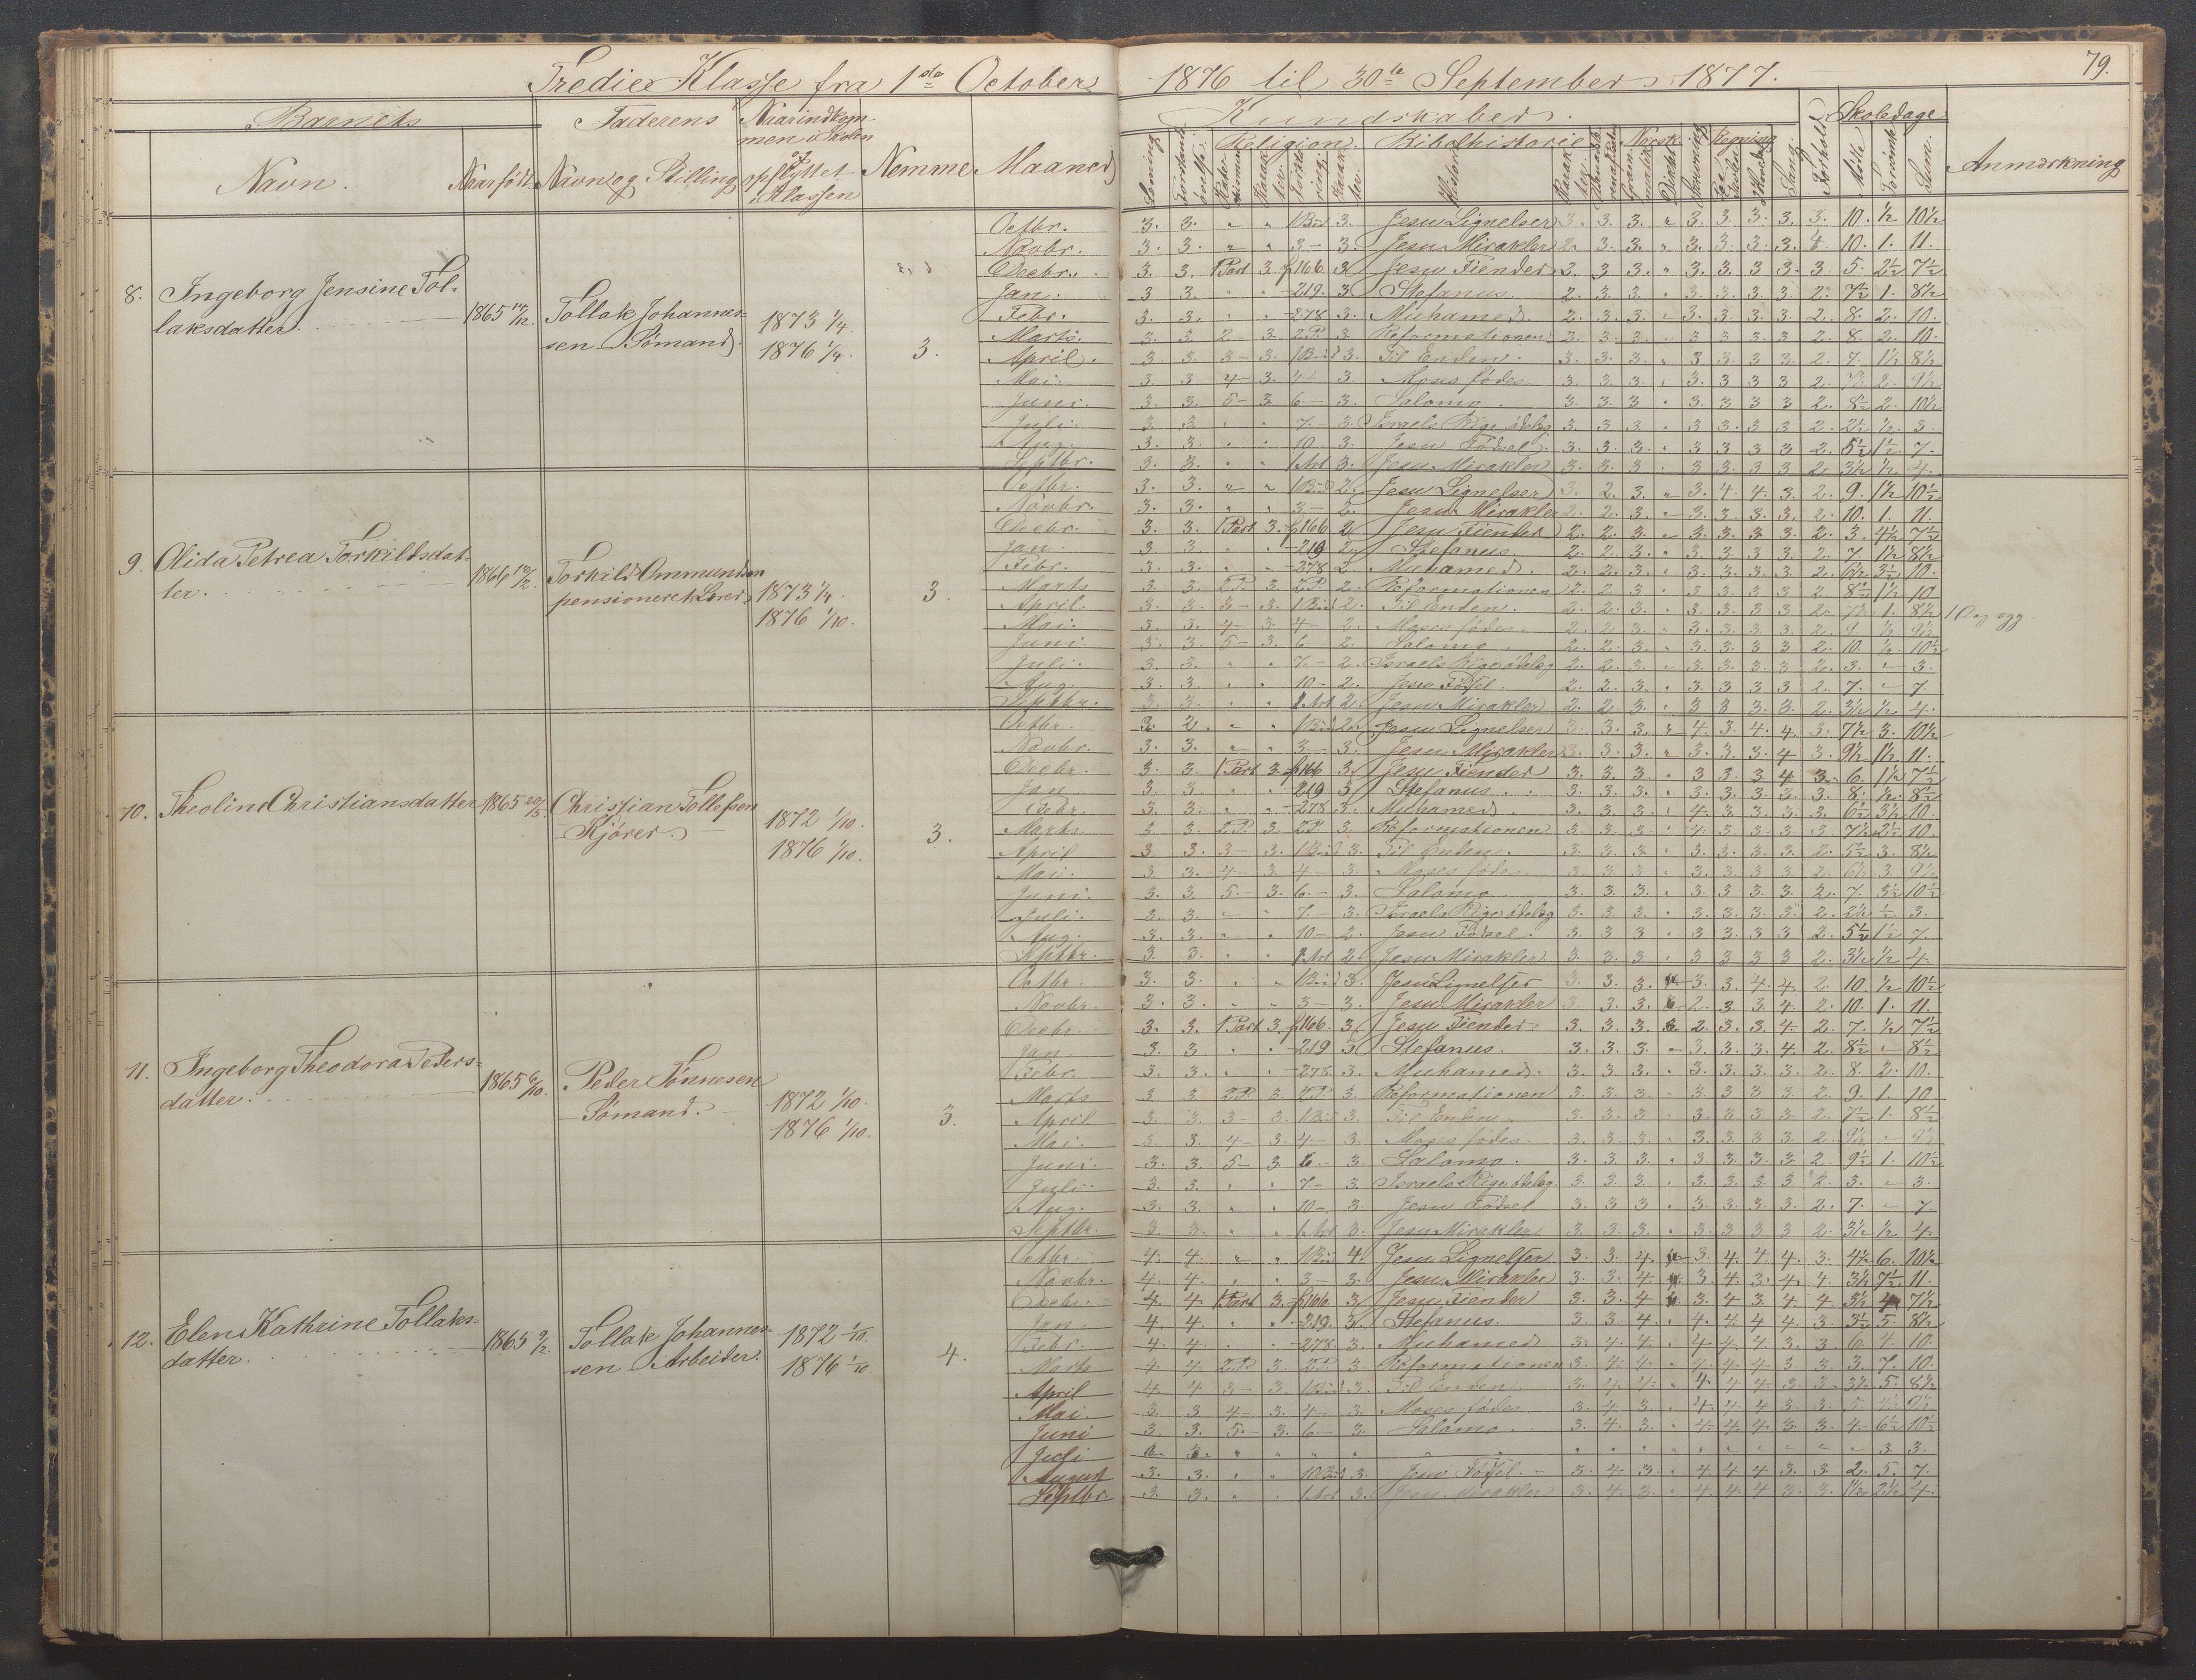 79.
Tredie Klasse fra 1ste October 1876 til 30te September 1877.
Barnets Faderens Naar indkommen i Skolen og opflyttet i Klassen Nemme Maaned
Navn. Naar født Navn og Stilling
Kundskaber. Forhold Skoledage Anmærkning
Religion. Bibelhistorie Norsk Regning Sang
8. Ingeborg Jensine Tollaksdatter. 1865 14/12. Tollak Johannessen Sømand 1873 1/4. 1876 1/4. 3.
Octbr. 3. 3. " " 1 Bind 3. Jesu Lignelser 3. 3. 3. " 3. 3. 3. 3. 3. 10. 1/2 10 1/2
Novbr. 3. 3. " " 3 — 3. Jesu Mirakler 2. 3. 3. " 3. 3. 3. 3. 4. 10. 1. 11.
Decbr. 3. 3. 1 Part 3. p 166 3 Jesu Fiender 2. 3 3. " 3. 3. 3 3. 3. 5. 2 1/2 7 1/2
Jan. 3 3. " " - 219. 3 Stefanus. 2. 3. 3. " 3. 3. 3. 3 2. 7 1/2 1. 8 1/2
Febr. 3. 3. " " - 278 3. Muhamed. 2. 3. 3. - 3. 3. 3. 3. 2. 8. 2. 10.
Marts. 3. 3. 2 - 3. 2 P. 3. Reformationen 2. 3. 3. " 3 3 3. 3 2. 8. 2. 10.
April. 3. 3. 3 - 3. 1 Bind 3. Til Enden. 3. 3. 3. " 3 3. 3. 3. 2. 7. 1 1/2 8 1/2
Mai. 3. 3 4 - 3. 4 - 3. Moses fødes 3. 3. 3. " 3. 3 3 3 2. 7 1/2 2. 9 1/2
Juni. 3. 3. 5 - 3 6. - 3. Salomo. 3. 3. 3 " 3. 3 3 3 2. 8 1/2 2. 10 1/2
Juli. 3 3. " " 7. - 3. Israels Rige ødelæg 3. 3 3 " 3. 3. 3 3 2. 2 1/2 1/2. 3.
Aug. 3. 3. " " 10 3. Jesu Fødsel. 3. 3. 3. " 3 3 3 3 2. 5 1/2 1 1/2 7.
Septbr. 3. 3. " " 1 Art 3. Jesu Mirakler 3. 3. 3 " 3 3. 3. 3 2. 3 1/2 1/2 4.
9. Olida Petrea Torkildsdatter. 1866 10/2. Torkild Ommundsen pensioneret Lærer 1873 1/4. 1876 1/10. 3.
Octbr. 3. 3. " " 1 Bind 2. Jesu Lignelser 3. 2. 3. " 3. 4. 4. 3. 2. 9. 1 1/2 10 1/2
Novbr. 3. 3. " " 3 — 2. Jesu Mirakler 2. 2. 3. " 3. 3. 3. 3. 2. 10. 1. 11.
Decbr. 3. 3. 1 Part 3. p 166 2 Jesu Fiender 2. 2. 3. " 3. 3. 3. 3. 2. 3. 4 1/2 7 1/2
Jan. 3. 3. " " - 219 2. Stefanus. 2. 2 3. " 3. 3. 3. 3. 2. 7. 1 1/2 8 1/2
Febr. 3. 3. " " - 278 2 Muhamed. 2. 2. 3. " 3. 3. 3. 3. 2. 6 1/2 3 1/2 10.
Marts 3. 3. 2 P. 3. 2 P 2. Reformationen 2. 2 3 " 3. 3 3 3 2 8 1/2 1 1/2 10
April. 3. 3. 3 - 3. 1 Bind 2. Til Enden. 2. 2. 3. " 3 3 3 3. 2. 7 1/2 1. 8 1/2
Mai. 3. 3. 4 - 3. 4 - 2. Moses fødes. 2. 2 3. " 3. 3 3. 3. 2. 9 1/2 9 1/2
Juni. 3. 3. 5 - 3. 6 - 2. Salomo. 2. 2. 3. " 3. 3. 3 3 2. 10. 1/2. 10 1/2
Juli. 3. 3. " " 7. - 2. Israels Rige ødelæg 2. 2. 3. " 3. 3. 3. 3 2. 3. - 3.
Aug. 3. 3. " " 10 - 2. Jesu Fødsel. 2. 2. 3. " 3. 3 3 3 2. 7. - 7.
Septbr. 3. 3. " " 1 Art 2 Jesu Mirakler 2. 2. 3. " 3 3 3. 3. 2. 3 1/2 1/2 4.
10. Theoline Christiansdatter 1865 20/5. Christian Tollefsen Kjører 1872 1/10. 1876 1/10. 3.
Octbr. 3. 2. " " 1 Bind 2. Jesu Lignelser 3. 3. 3. " 4. 3. 4. 4. 3. 7 1/2 3. 10 1/2
Novbr. 3. 3. " " 3 — 3. Jesu Mirakler 3. 3. 3. " 3. 3. 3. 4 3. 9 1/2 1 1/2 11.
Decbr. 3. 3. 1 Part 3. p 166 3. Jesu Fiender 3. 3. 3 " 3 3. 3 4 3. 6. 1 1/2 7 1/2
Jan. 3. 3. " " 219 3 Stefanus. 3. 3. 3. " 3. 3. 3. 3. 3. 8. 1/2. 8 1/2
Febr. 3. 3. " " - 278 3. Muhamed. 3. 3. 3. " 4. 3. 3. 3. 3. 6 1/2 3 1/2 10.
Marts. 3 3. 2 P. 3. 2 P. 3. Reformationen 3. 3. 3. " 4. 3 3. 3. 3 7 1/2 2 1/2 10.
April 3 3. 3 - 3. 1 Bind 3. Til Enden. 3. 3. 3. " 3. 3. 3. 3. 2. 5 1/2 3. 8 1/2
Mai. 3 3. 4 - 3 4 - 3. Moses fødes. 3. 3 3 " 3. 3 3. 3 2. 6 1/2 3. 9 1/2
Juni. 3. 3 5. - 3. 6. - 3. Salomo 3. 3. 3. " 3. 3 3. 3. 2. 7. 3 1/2 10 1/2
Juli. 3. 3. " " 7. - 3. Israels Rige ødelæg 3. 3. 3. " 3. 3. 3. 3. 2. 2 1/2 1/2 3.
Aug. 3. 3. " " 10 - 2. Jesu Fødsel. 3. 3 3 " 3 3. 3 3 2. 5 1/2 1 1/2 7.
Septbr. 3. 3. " " 1 Art 2. Jesu Mirakler 3. 3. 3. " 3 3 3 3 2. 3 1/2 1/2 4.
11. Ingeborg Theodora Pedersdatter. 1865 6/10. Peder Tønnesen Sømand. 1872 1/10. 1876 1/10. 3.
Octbr. 3. 3. " " 1 Bind 3. Jesu Lignelser 3. 3. 3. 3. 3. 4. 4. 2. 10. 1/2 10 1/2
Novbr. 3. 3. " " 3 — 3. Jesu Mirakler 3. 3. 3. 2. 3 3. 4. 2. 10. 1. 11.
Decbr. 3. 3. 1 Part 3. p 166. 3. Jesu Fiender 3. 3. 3. 2. 3. 3. 4. 2. 7. 1/2 7 1/2
Jan. 3. 3 " " - 219 3 Stefanus. 3. 3. 3. - 3. 3. 3. 4. 2. 8 1/2 - 8 1/2
Febr. 3. 3. " " - 278. 3. Muhamed. 3. 3. 3. " 3. 3. 3. 3. 2. 8. 2. 10.
Marts 3 3 2 P. 3 2 P. 3. Reformationen 3. 3. 3. " 3. 3 3 3 2. 9. 1. 10
April 3 3. 3 - 3. 1 Bind 3 Til Enden 3. 3. 3. " 3. 3. 3. 3. 2. 7 1/2 1. 8 1/2
Mai. 3 3. 4 - 3. 4 - 3. Moses fødes. 3. 3. 3. " 3. 3. 3. 3. 2. 9 1/2 - 9 1/2
Juni. 3. 3. 5 - 3 6. - 3. Salomo. 3. 3. 3. " 3. 3. 3. 3 2. 9 1/2 1. 10 1/2
Juli. 3. 3. " " 7. - 3 Israels Rige ødelæg. 3. 3. 3. " 3. 3. 3. 3 2. 3. - 3.
Aug. 3. 3. " " 10 - 3. Jesu Fødsel 3. 3 3 " 3. 3. 3. 3. 2. 7. - 7.
Septbr. 3. 3. " " 1 Art 3. Jesu Mirakler 3. 3. 3. " 3. 3 3 3 2. 3 1/2 1/2 4.
12. Elen Kathrine Tollaksdatter. 1865 9/2. Tollak Johannessen Arbeider. 1872 1/10. 1876 1/10. 4.
Octbr. 4. 4. " " 1 Bind 4. Jesu Lignelser 3. 3. 4. 3. 4. 4. 4. 3. 4 1/2 6. 10 1/2
Novbr. 4. 4. " " 3 — 3. Jesu Mirakler 3. 3. 4 3. 4. 3. 4. 4. 3 1/2 7 1/2 11.
Decbr. 4. 4. 1 Part 3. p 166 3. Jesu Fiender 3. 3. 4 3. 4 3. 4 4. 3 1/2 4 7 1/2
Jan. 4. 4. " " - 219. 3. Stefanus. 3. 3 4. " 4. 4 4. 4. 3. 3 1/2 5. 8 1/2
Febr. 4. 4. " " - 278. 3. Muhamed 3. 4. 4. " 4. 4. 4. 3. 3. 6. 4. 10.
Marts 4. 4. 2 P. 3. 2 P. 3 Reformationen 3. 4. 4. " 4. 4. 4. 3 3 3. 7. 10.
April 4. 4 3 - 3. 1 Bind 3. Til Enden 3. 4. 4. " 4. 4. 4. 3. 3. 3 1/2 5. 8 1/2
Mai. 3 3 4 - 3. 4 - 3. Moses fødes 3. 4. 3. " 4. 4. 4 3. 3. 5 4 1/2 9 1/2
Juni 3. 3. 5. - 3. 6 - 3. Salomo. 3. 4. 3. " 4. 4. 4. 3. 3. 4 - 6 1/2 10 1/2
Juli " " " " " " " " " " " " " " 3. 3.
August 3. 3. " " 10 Bind 3. Jesu Fødsel. - 3. 4. 3. " 4. 4. 4. 3. 3. 2. 5. 7.
Septbr. 3. 3. " " 1 Art 3. Jesu Mirakler 3. 4. 3. " 4. 4. 4 3. 3. 1 1/2 2 1/2 4.